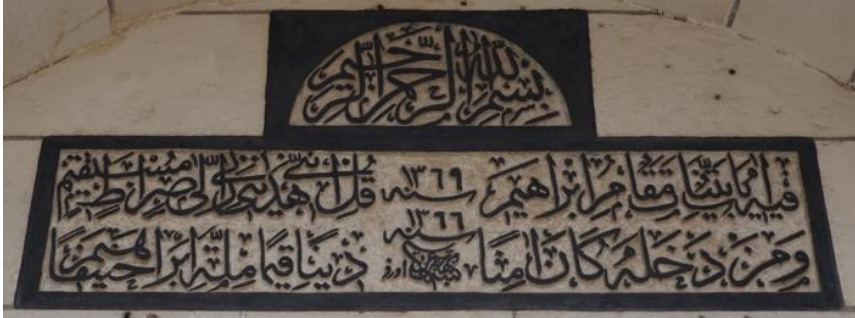 بسم الله الرحمن الرحيم
فيه اٰيات بينات مقام ابراهيم سنه ١٣٦٩ قل انني هداني ربي الى صراط مستقيم
ومن دخله كان امنا سنه ١٣٦٦ دينا قيما ملة ابراهيم حنيفا